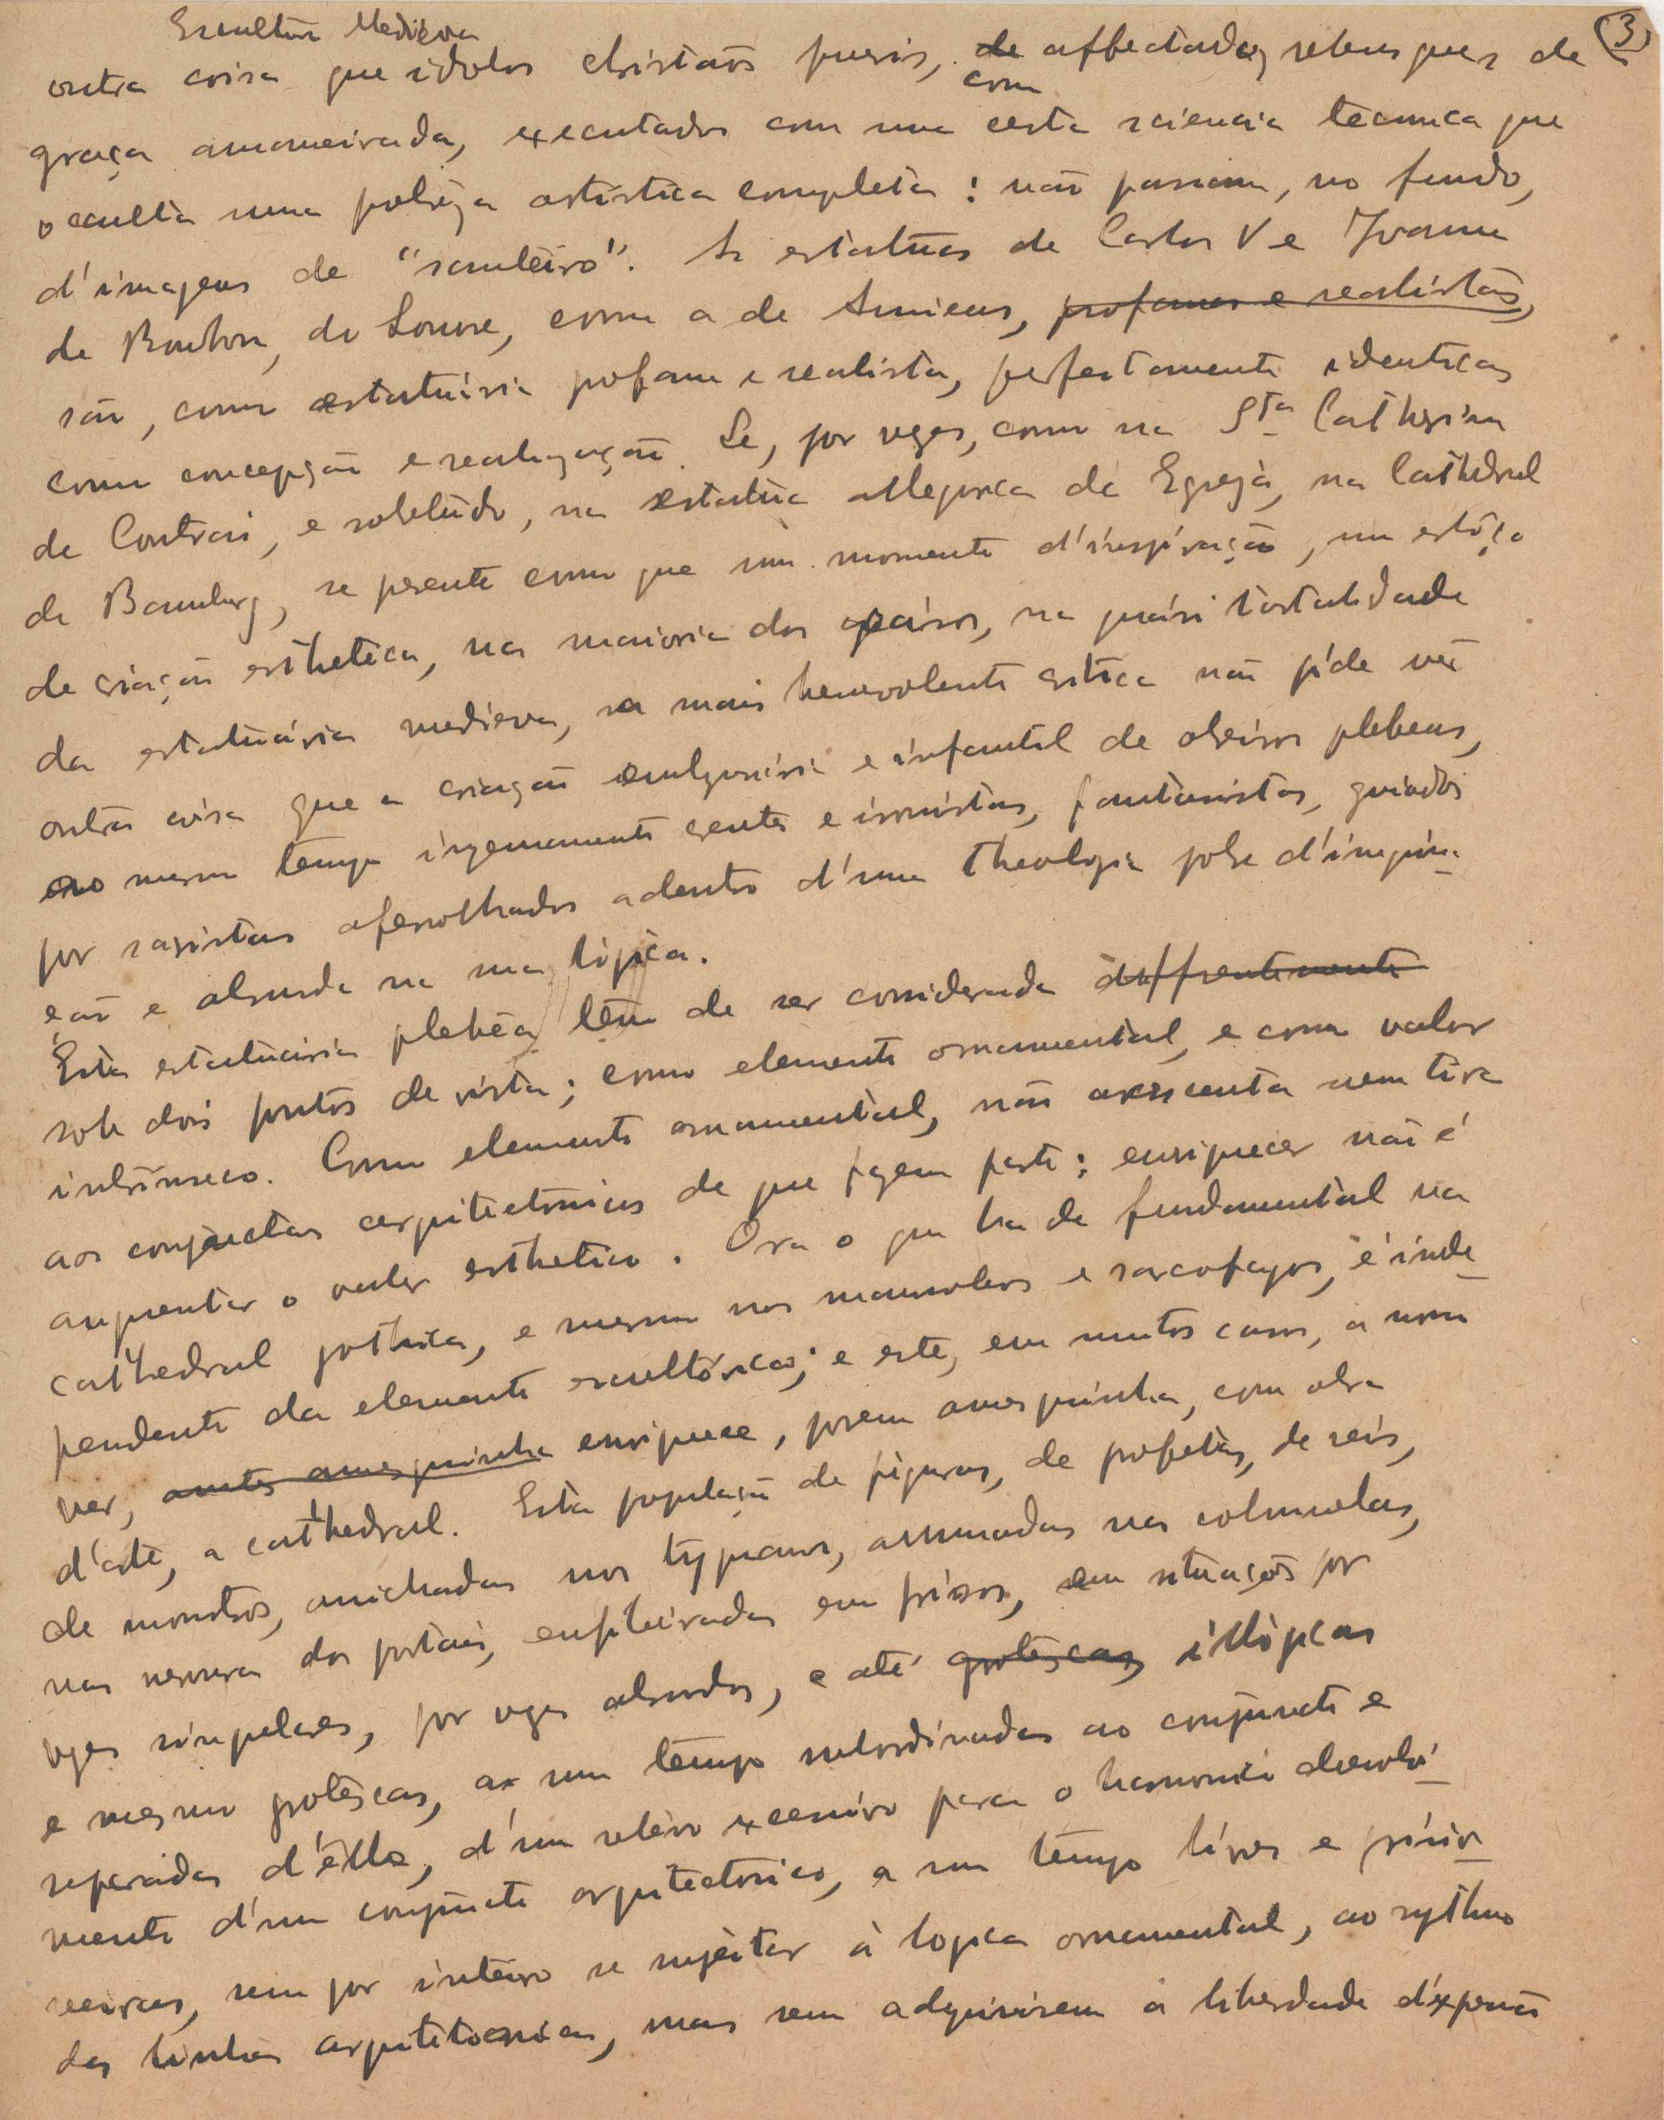 Escultura Medieva
(3)
outra coisa que idolos christãos pueris, de affectados rebusques de
com
graça amaneirada, executados com uma certa sciencia tecnica que
occulta uma pobreza artistica completa: não passam, no fundo,
d'imagens de "santeiro". As estatuas de Carlos V e Joanna
de Bourbon, do Louvre, como a de Amiens, profanas e realistas,
são, como estatuária profana e realista, perfeitamente identicas
como concepção e realização. Se, por vezes, como na Sta Catherina
de Contrai, e sobretudo, na estatua allegorica da Egreja, na Cathedral
de Bamberg, se presente como que um momento d'inspiração, um esfôrço
de criação esthetica, na maioria dos casos, na quási totalidade
da estatuária medieva, a mais benevolente critica não póde vêr
outra coisa que a criação e infantil de obreiros plebeus,
ao mesmo tempo ingenuamente crentes e ironistas, fantasistas, guiados
por sacristas aferrolhados adentro d'uma theologia pobre d'imagina-
ção e absurda na sua lógica.
Esta estatuaria plebêa têm de ser considerada differentemente
sob dois pontos de vista; como elemento ornamental, e como valor
intrínseco. Como elemento ornamental, não acrescenta nem tira
aos conjunctos arquitectónicos de que fazem parte: enriquecer não é
augmentar o valor esthetico. Ora o que ha de fundamental na
cathedral gothica, e mesmo nos mausoleos e sarcofagos, é inde-
pendente do elemento escultórico; e este, em muitos casos, a meu
ver, antes amesquinha enriquece, porem amesquinha, com obra
d'arte, a cathedral. Esta população de figuras, de profetas, de reis,
de monstros, anichadas nos tympanos, arrumadas nas columelas,
nas nervuras dos portais, enfileiradas em frisos, em situações por
vezes singulares, por vezes absurdas, e até grotescas, illógicas
e mesmo grotescas, a um tempo subordinadas ao conjuncto e
separadas d'êlle, d'um relêvo excessivo para o harmonico desenvolvi-
mento d'um conjuncto arquitectonico, a um tempo livres e prisio-
neiras, sem por inteiro se sujeitar á logica ornamental, ao rythmo
das linhas arquitetonicas, mas sem adquirirem a liberdade d'expressão